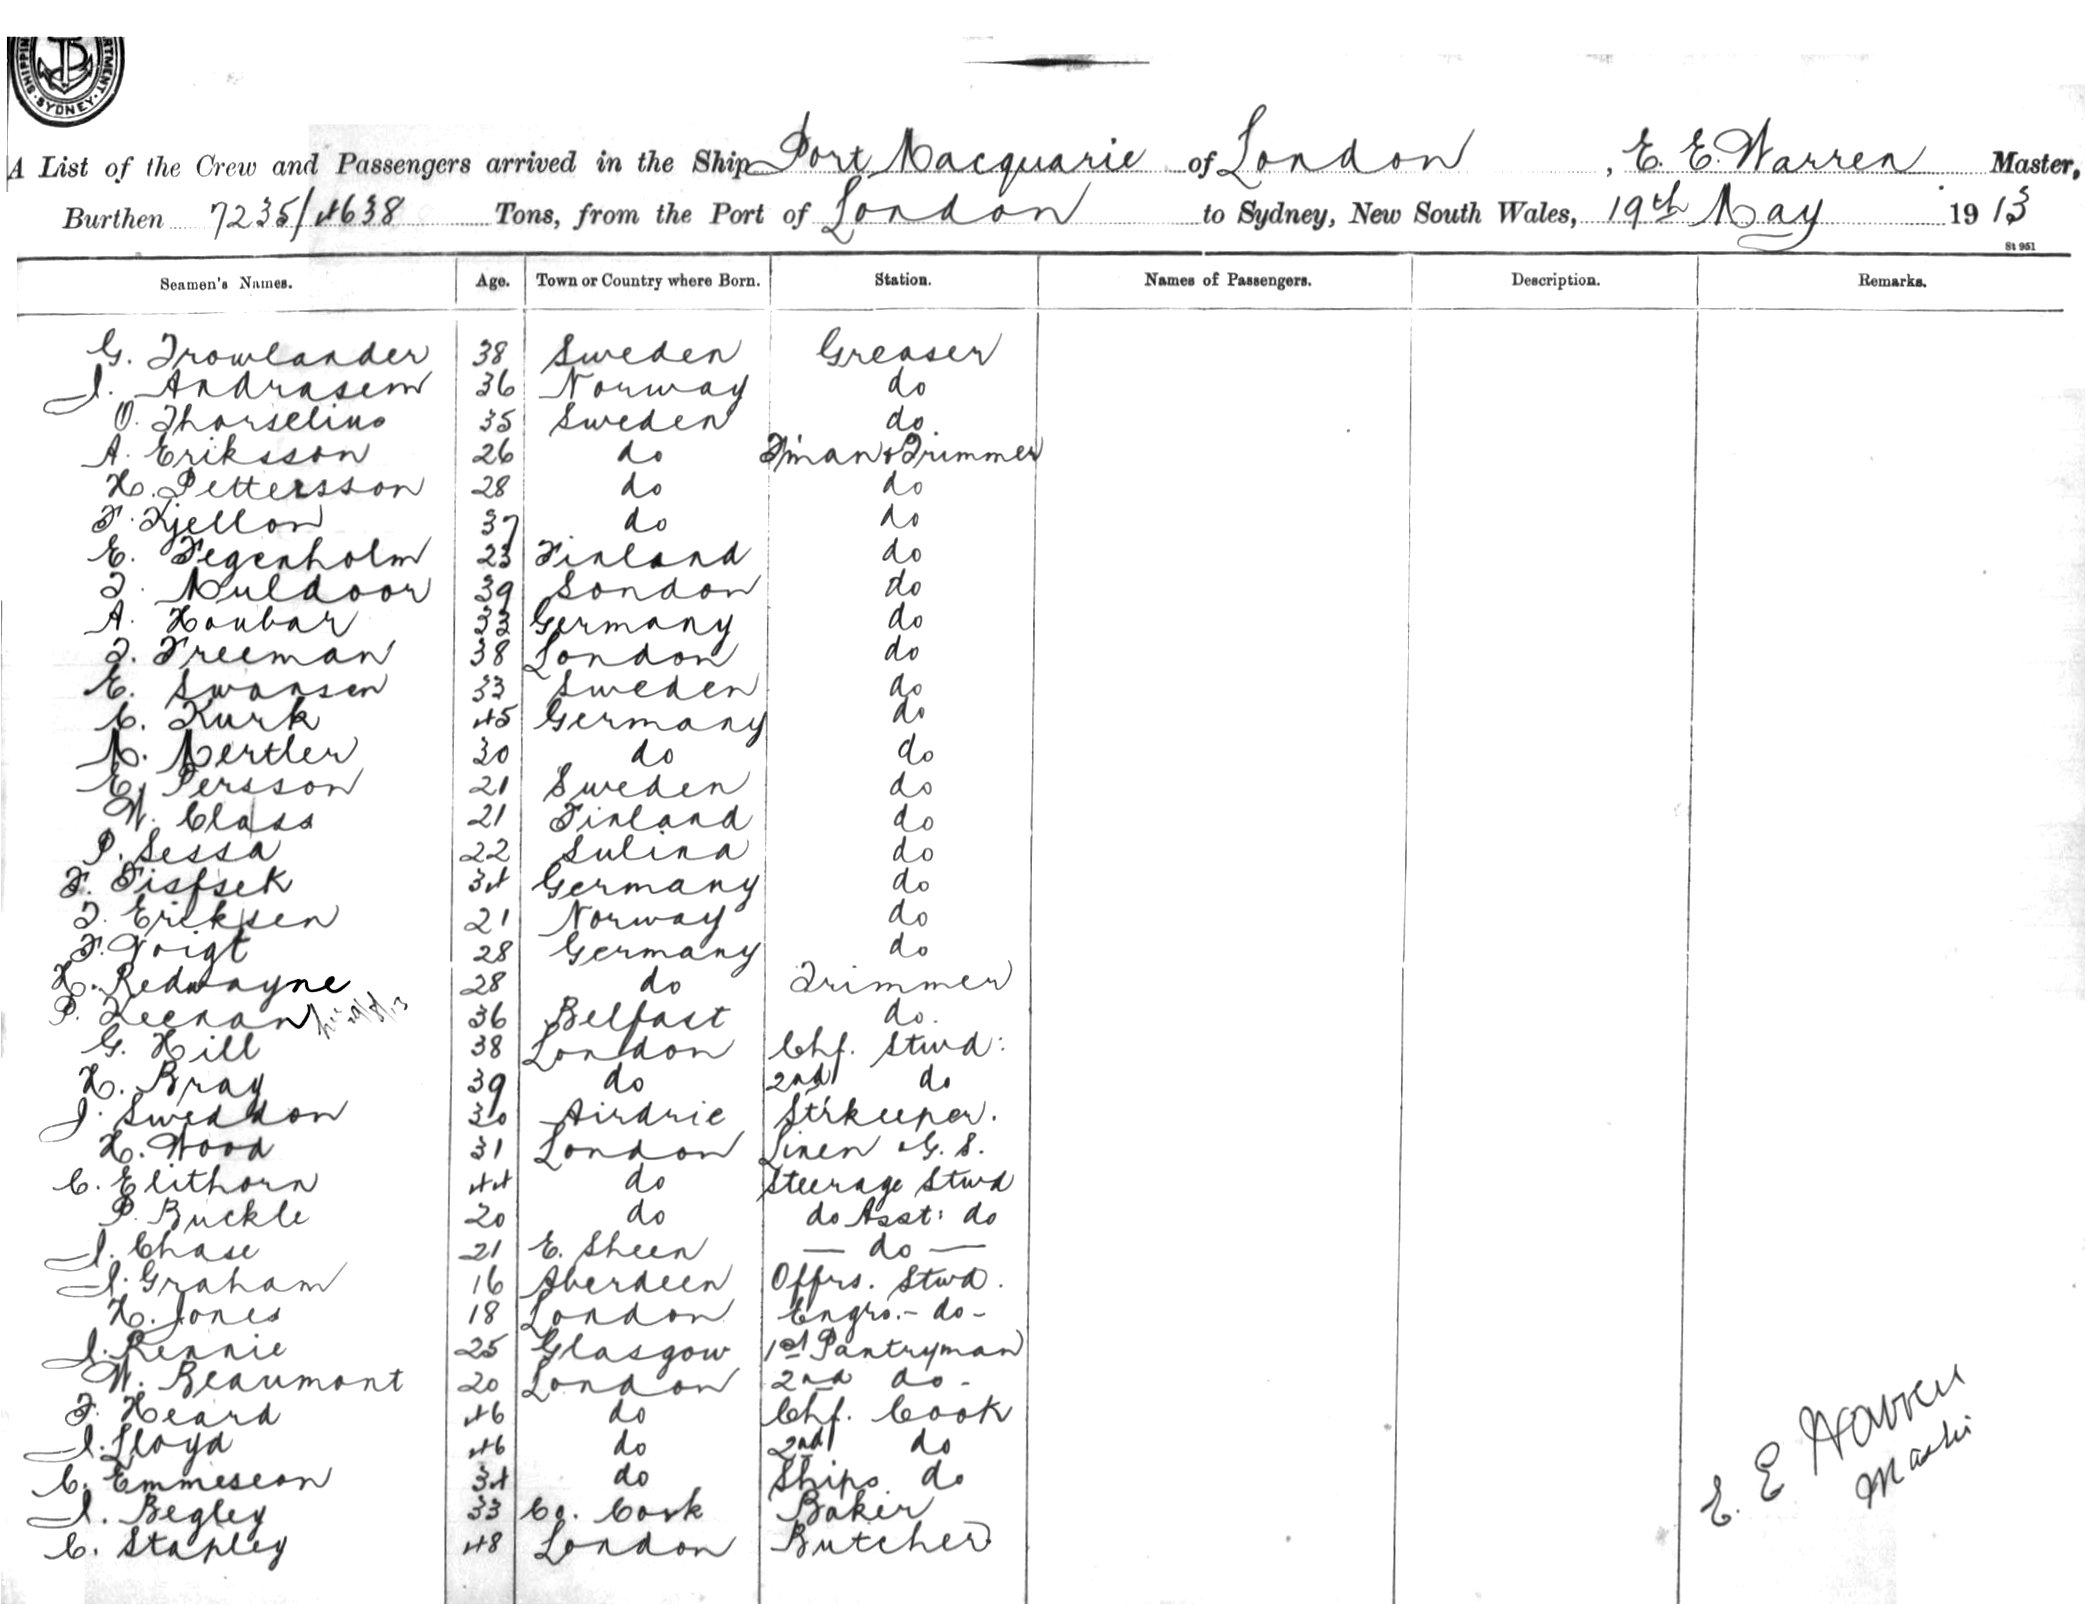 SHIPPING DEPARTMENT SYDNEY
A List of the Crew and Passengers arrived in the Ship Port Macquarie of London, E. E. Warren Master,
Burthen 7235/4638 Tons, from the Port of London to Sydney, New South Wales, 19th May 1913
St 951
Seamen's Names. Age. Town or Country where Born. Station. Names of Passengers. Description. Remarks.
G. Trowlander 38 Sweden Greaser
J. Andrasem 36 Norway do
O. Thorselius 35 Sweden do
A. Eriksson 26 do F'man & Trimmer
H. Pettersson 28 do do
F. Kjellon 37 do do
E. Fegenholm 23 Finland do
T. Muldoor 39 London do
A. Houbar 33 Germany do
T. Freeman 38 London do
E. Swansen 33 Sweden do
C. Kurk 45 Germany do
M. Mertler 30 do do
E. Persson 21 Sweden do
W. Class 21 Finland do
P. Sessa 22 Sulina do
F. 34 Germany do
T. Eriksen 21 Norway do
F. Voigt 28 Germany do
H. Redwayne 28 do Trimmer
P. Keenan 36 Belfast do.
G. Hill 38 London Chf. Stwd:
H. Bray 39 do 2nd do
J. Sweddon 30 Airdrie Str'keeper.
H. Wood 31 London Linen & G. S.
C. Elithorn 44 do Steerage Stwd
P. Buckle 20 do do Asst: do
J. Chase 21 E. Sheen — do —
J. Graham 16 Aberdeen Offrs. Stwd.
H. Jones 18 London Engrs. - do -
J. Rennie 25 Glasgow 1st Pantryman
W. Beaumont 20 London 2nd do -
F. Heard 46 do Chf. Cook
J. Lloyd 46 do 2nd do
C. Emmeseon 34 do Ships do
J. Begley 33 Co. Cork Baker
C. Stapley 48 London Butcher
E. E Warren
Master